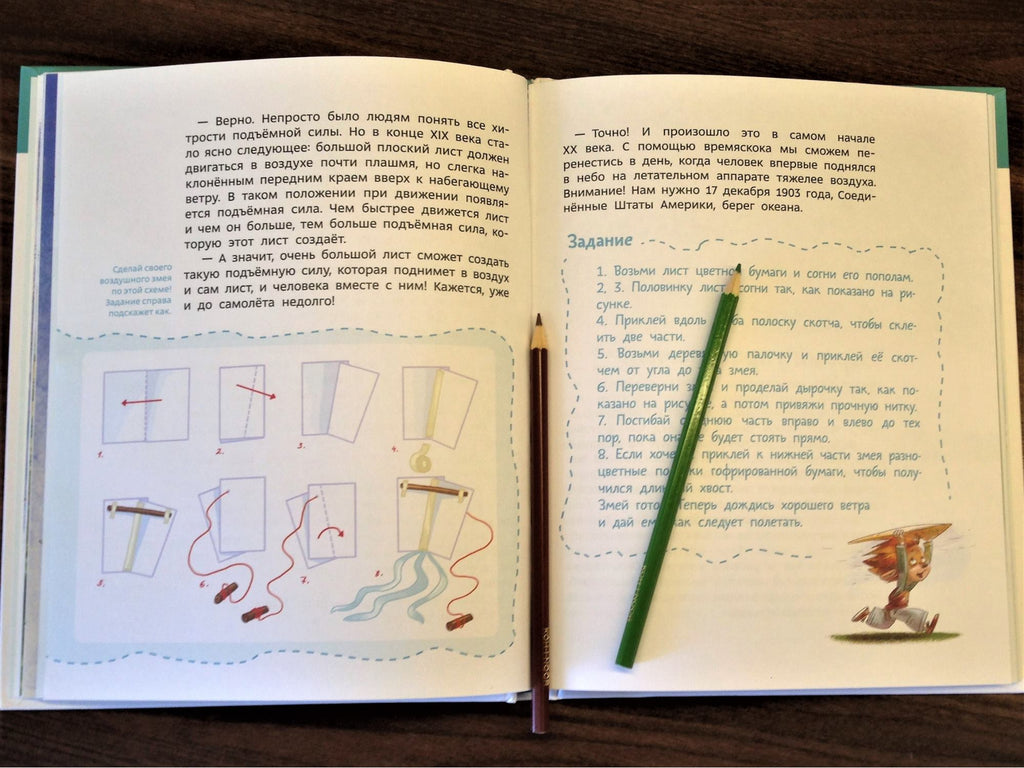 — Верно. Непросто было людям понять все хи-
трости подъёмной силы. Но в конце XIX века ста-
ло ясно следующее: большой плоский лист должен
двигаться в воздухе почти плашмя, но слегка на-
клонённым передним краем вверх к набегающему
ветру. В таком положении при движении появля-
ется подъёмная сила. Чем быстрее движется лист
и чем он больше, тем больше подъёмная сила, ко-
торую этот лист создаёт.
— А значит, очень большой лист сможет создать
такую подъёмную силу, которая поднимет в воздух
и сам лист, и человека вместе с ним! Кажется, уже
и до самолёта недолго!
Сделай своего
воздушного змея
по этой схеме!
Задание справа
подскажет как.
1.
2.
3.
4.
5.
6.
7.
8.
— Точно! И произошло это в самом начале
XX века. С помощью времяскока мы сможем пе-
ренестись в день, когда человек впервые поднялся
в небо на летательном аппарате тяжелее воздуха.
Внимание! Нам нужно 17 декабря 1903 года, Соеди-
нённые Штаты Америки, берег океана.
Задание
1. Возьми лист цветной бумаги и согни его пополам.
2, 3. Половинку листа согни так, как показано на ри-
сунке.
4. Приклей вдоль полоску скотча, чтобы скле-
ить две части.
5. Возьми деревянную палочку и приклей её скот-
чем от угла до змея.
6. Переверни и проделай дырочку так, как по-
казано на рисунке, а потом привяжи прочную нитку.
7. Постгибай среднюю часть вправо и влево до тех
пор, пока она не будет стоять прямо.
8. Если хочешь, приклей к нижней части змея разно-
цветные полоски гофрированной бумаги, чтобы полу-
чился длинный хвост.
Змей готов! Теперь дождись хорошего ветра
и дай ему как следует полетать.
KOH-I-NOOR